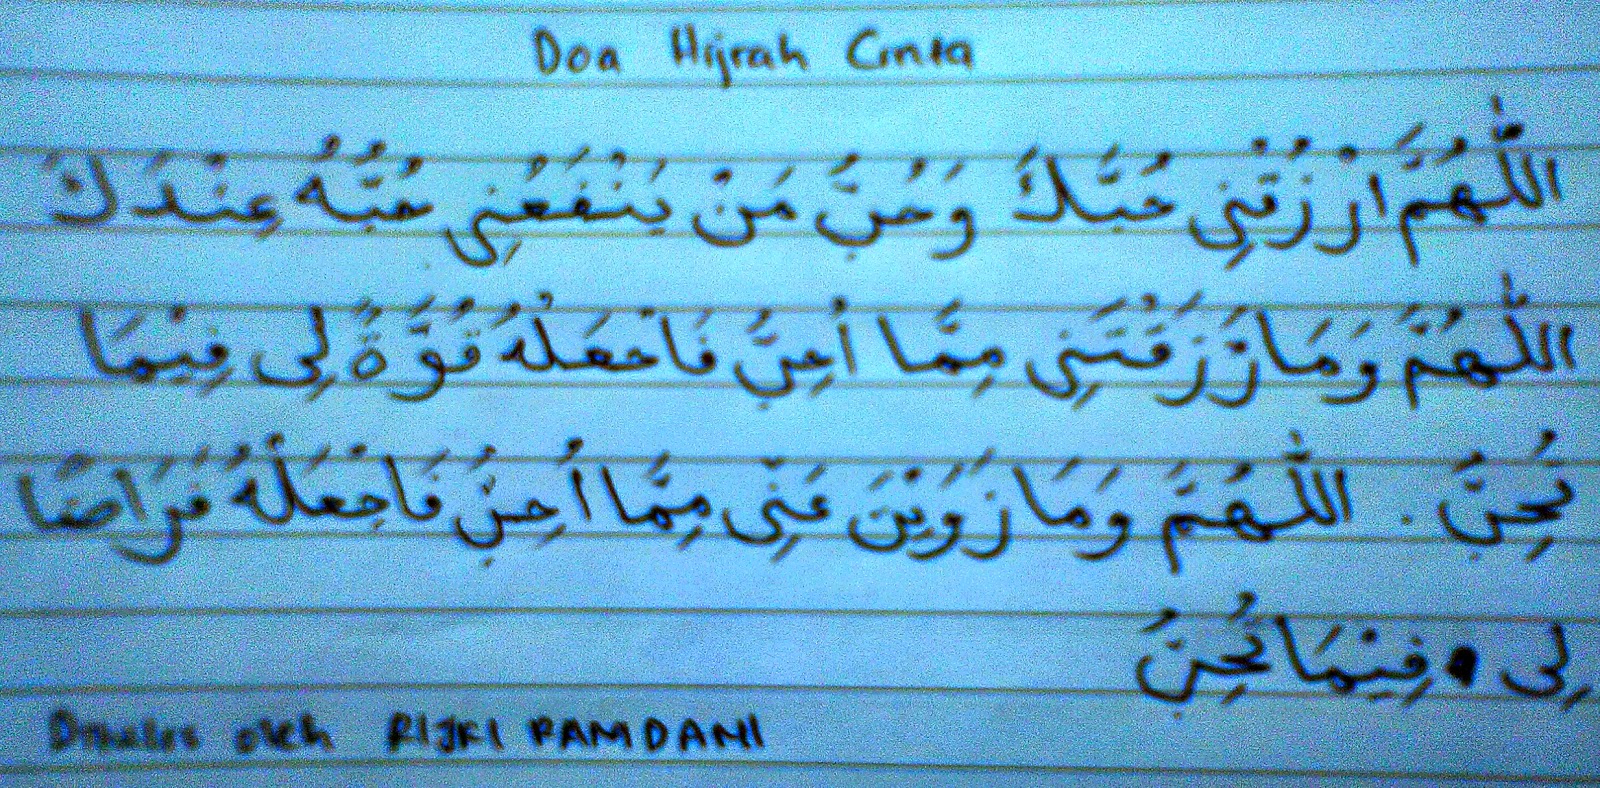 Doa Hijrah Cinta
اللّٰهُمَّ ارْزُقْنِي حُبَّكَ وَحُبَّ مَنْ يَنْفَعُنِي حُبُّهُ عِنْدَكَ
اللّٰهُمَّ وَمَا رَزَقْتَنِي مِمَّا أُحِبُّ فَاجْعَلْهُ قُوَّةً لِي فِيْمَا
تُحِبُّ . اللّٰهُمَّ وَمَا زَوَيْتَ عَنِّي مِمَّا أُحِبُّ فَاجْعَلْهُ فَرَاغًا
لِي فِيْمَا تُحِبُّ
Ditulis oleh RIJKI RAMDANI